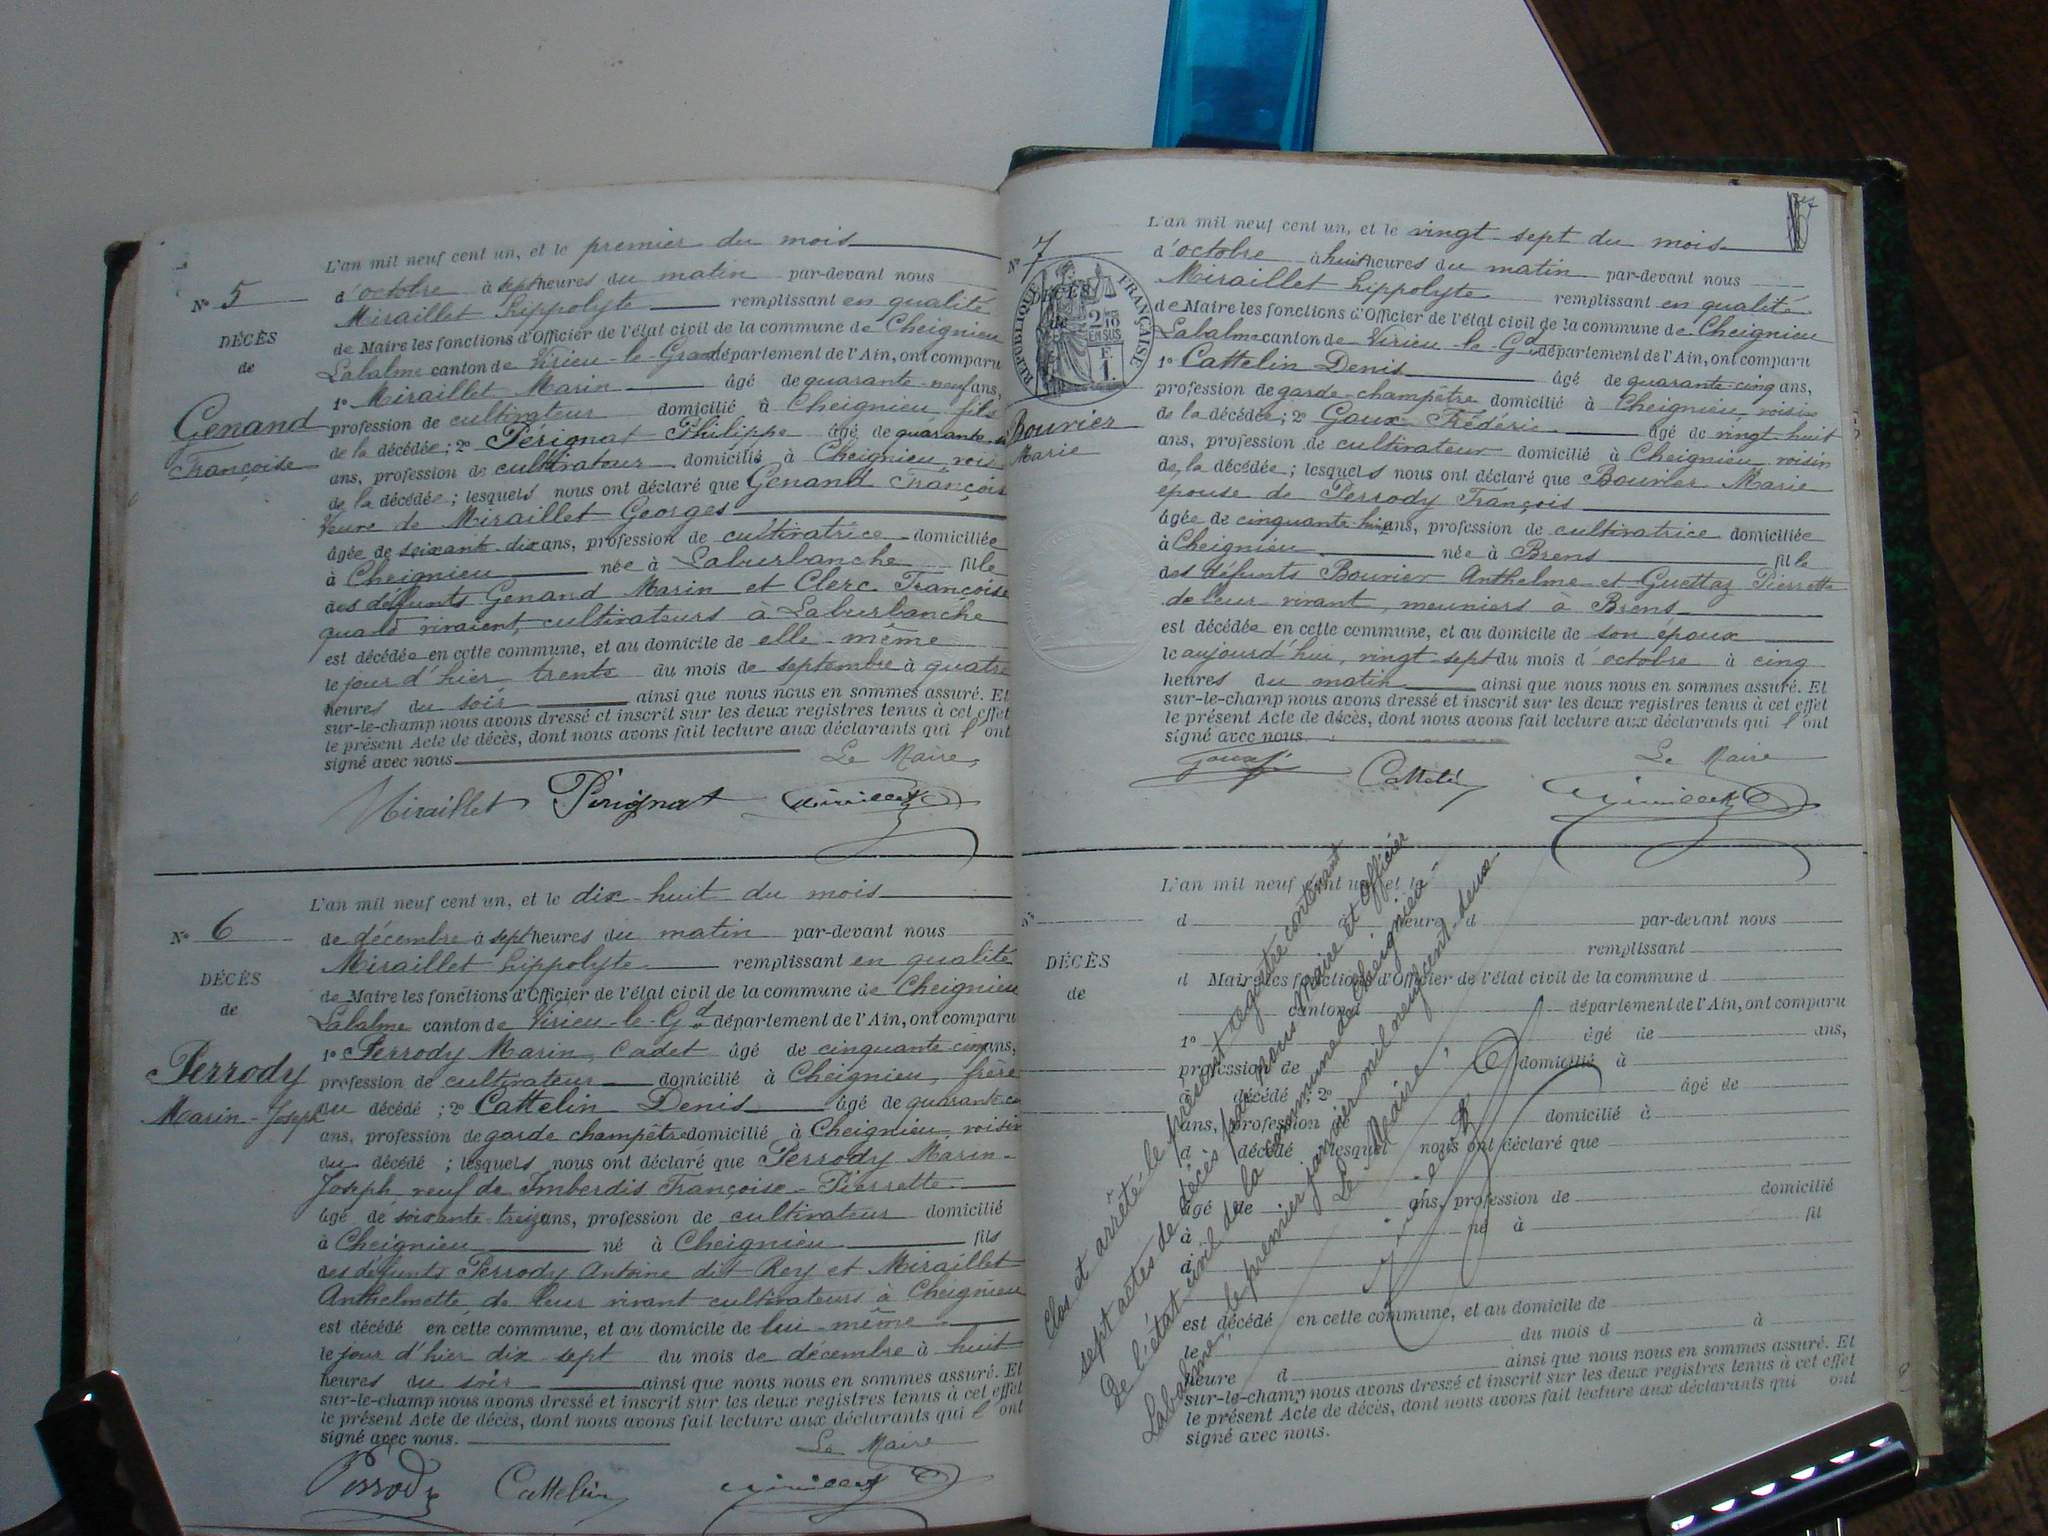 L'an mil neuf cent un, et le premier du mois
N° 5
d'octobre à sept heures du matin par-devant nous
Miraillet Hippolyte remplissant en qualité
DÉCÈS
de Maire les fonctions d'Officier de l'état civil de la commune de Cheignieu
de
Labalme canton de Virieu-le-Grand département de l'Ain, ont comparu
1° Miraillet Marin âgé de quarante-neuf ans,
Genand
profession de cultivateur domicilié à Cheignieu fils
Françoise
de la décédée; 2° Pérignat Philippe âgé de quarante-
ans, profession de cultivateur domicilié à Cheignieu, voisin
de la décédée; lesquels nous ont déclaré que Genand Françoise
Veuve de Miraillet Georges
âgée de soixante-dix ans, profession de cultivatrice domiciliée
à Cheignieu née à Laburbanche fille
des défunts Genand Marin et Clerc Françoise
quand vivaient, cultivateurs à Laburbanche
est décédée en cette commune, et au domicile de elle-même
le jour d'hier trente du mois de septembre à quatre
heures du soir ainsi que nous nous en sommes assuré. Et
sur-le-champ nous avons dressé et inscrit sur les deux registres tenus à cet effet
le présent Acte de décès, dont nous avons fait lecture aux déclarants qui l'ont
signé avec nous.
Le Maire,
Miraillet Pérignat Miraillet
L'an mil neuf cent un, et le dix-huit du mois
N° 6
de décembre à sept heures du matin par-devant nous
Miraillet Hippolyte remplissant en qualité
DÉCÈS
de Maire les fonctions d'Officier de l'état civil de la commune de Cheignieu
de
Labalme canton de Virieu-le-Gd département de l'Ain, ont comparu
1° Perrody Marin, Cadet âgé de cinquante-cinq ans,
Perrody
profession de cultivateur domicilié à Cheignieu, frère
Marin-Joseph
du décédé; 2° Cattelin Denis âgé de quarante-
ans, profession de garde champêtre domicilié à Cheignieu, voisin
du décédé; lesquels nous ont déclaré que Perrody Marin-
Joseph, veuf de Imberdis Françoise-Pierrette
âgé de soixante-treize ans, profession de cultivateur domicilié
à Cheignieu né à Cheignieu fils
des défunts Perrody Antoine dit Rey et Miraillet
Anthelmette de leur vivant cultivateurs à Cheignieu
est décédé en cette commune, et au domicile de lui-même
le jour d'hier dix-sept du mois de décembre à huit
heures du soir ainsi que nous nous en sommes assuré. Et
sur-le-champ nous avons dressé et inscrit sur les deux registres tenus à cet effet
le présent Acte de décès, dont nous avons fait lecture aux déclarants qui l'ont
signé avec nous.
Le Maire
Perrody Cattelin Miraillet
L'an mil neuf cent un, et le vingt-sept du mois
N° 7
d'octobre à huit heures du matin par-devant nous
Miraillet Hippolyte remplissant en qualité
DÉCÈS
de Maire les fonctions d'Officier de l'état civil de la commune de Cheignieu
de
RÉPUBLIQUE FRANÇAISE
2/10 EN SUS
F. 1.
Labalme canton de Virieu-le-Gd département de l'Ain, ont comparu
1° Cattelin Denis âgé de quarante-cinq ans,
profession de garde-champêtre domicilié à Cheignieu, voisin
Bouvier
de la décédée; 2° Goux Frédéric âgé de vingt-huit
Marie
ans, profession de cultivateur domicilié à Cheignieu voisin
de la décédée; lesquels nous ont déclaré que Bouvier Marie
épouse de Perrody François
âgée de cinquante-huit ans, profession de cultivatrice domiciliée
à Cheignieu née à Brens fille
des défunts Bouvier Anthelme et Guettaz Pierrette
de leur vivant, meuniers à Brens
est décédée en cette commune, et au domicile de son époux
le aujourd'hui, vingt-sept du mois d'octobre à cinq
heures du matin ainsi que nous nous en sommes assuré. Et
sur-le-champ nous avons dressé et inscrit sur les deux registres tenus à cet effet
le présent Acte de décès, dont nous avons fait lecture aux déclarants qui l'ont
signé avec nous.
Le Maire
Goux Cattelin Miraillet
L'an mil neuf cent un, et le
N°
d à heure d par-devant nous
remplissant
DÉCÈS
d Maire les fonctions d'Officier de l'état civil de la commune d
de
canton d département de l'Ain, ont comparu
1° âgé de ans,
profession de domicilié à
d décédé; 2° âgé de
ans, profession de domicilié à
d décédé; lesquel nous ont déclaré que
âgé de ans, profession de domicilié
à né à fil
d
est décédé en cette commune, et au domicile de
le du mois d à
heure d ainsi que nous nous en sommes assuré. Et
sur-le-champ nous avons dressé et inscrit sur les deux registres tenus à cet effet
le présent Acte de décès, dont nous avons fait lecture aux déclarants qui ont
signé avec nous.
Clos et arrêté le présent registre contenant
sept actes de décès par nous Maire et Officier
de l'état civil de la commune de Cheignieu-
Labalme, le premier janvier mil neuf cent-deux
Le Maire,
Miraillet